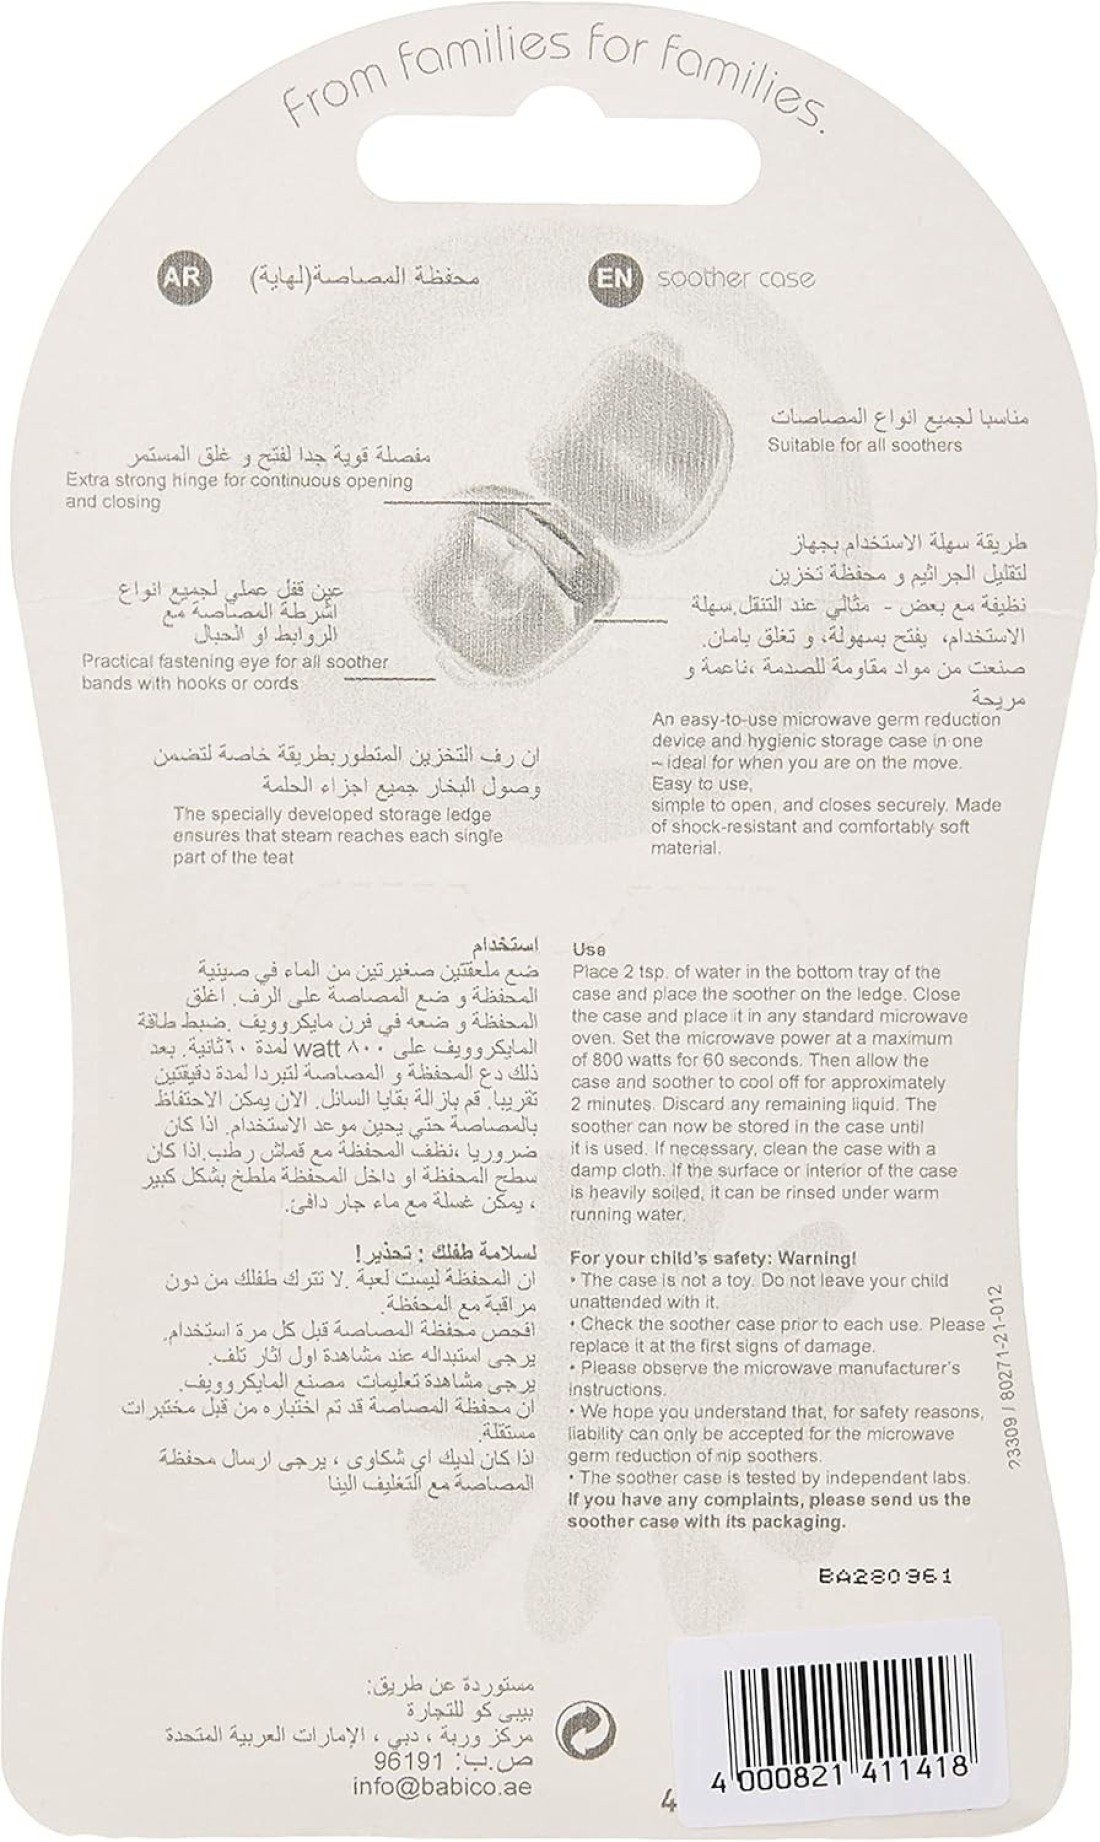 From families for families.
AR
محفظة المصاصة(لهاية)
EN
soother case
مناسبا لجميع انواع المصاصات
Suitable for all soothers
مفصلة قوية جدا لفتح و غلق المستمر
Extra strong hinge for continuous opening
and closing
طريقة سهلة الاستخدام بجهاز
لتقليل الجراثيم و محفظة تخزين
نظيفة مع بعض - مثالي عند التنقل.سهلة
الاستخدام، يفتح بسهولة، و تغلق بامان.
صنعت من مواد مقاومة للصدمة ،ناعمة و
مريحة
An easy-to-use microwave germ reduction
device and hygienic storage case in one
– ideal for when you are on the move.
Easy to use,
simple to open, and closes securely. Made
of shock-resistant and comfortably soft
material.
عين قفل عملي لجميع انواع
اشرطة المصاصة مع
الروابط او الحبال
Practical fastening eye for all soother
bands with hooks or cords
ان رف التخزين المتطور بطريقة خاصة لتضمن
وصول البخار جميع اجزاء الحلمة
The specially developed storage ledge
ensures that steam reaches each single
part of the teat
استخدام
ضع ملعقتين صغيرتين من الماء في صينية
المحفظة و ضع المصاصة على الرف. اغلق
المحفظة و ضعه في فرن مايكروويف .ضبط طاقة
المايكروويف على ٨٠٠ watt لمدة ٦٠ثانية. بعد
ذلك دع المحفظة و المصاصة لتبردا لمدة دقيقتين
تقريبا. قم بازالة بقايا السائل. الان يمكن الاحتفاظ
بالمصاصة حتي يحين موعد الاستخدام. اذا كان
ضروريا ،نظف المحفظة مع قماش رطب.اذا كان
سطح المحفظة او داخل المحفظة ملطخ بشكل كبير
، يمكن غسلة مع ماء جار دافئ.
Use
Place 2 tsp. of water in the bottom tray of the
case and place the soother on the ledge. Close
the case and place it in any standard microwave
oven. Set the microwave power at a maximum
of 800 watts for 60 seconds. Then allow the
case and soother to cool off for approximately
2 minutes. Discard any remaining liquid. The
soother can now be stored in the case until
it is used. If necessary, clean the case with a
damp cloth. If the surface or interior of the case
is heavily soiled, it can be rinsed under warm
running water.
لسلامة طفلك : تحذير!
ان المحفظة ليست لعبة .لا تترك طفلك من دون
مراقبة مع المحفظة.
افحص محفظة المصاصة قبل كل مرة استخدام.
يرجى استبداله عند مشاهدة اول اثار تلف.
يرجى مشاهدة تعليمات مصنع المايكروويف.
ان محفظة المصاصة قد تم اختباره من قبل مختبرات
مستقلة.
اذا كان لديك اي شكاوى ، يرجى ارسال محفظة
المصاصة مع التغليف الينا
For your child's safety: Warning!
• The case is not a toy. Do not leave your child
unattended with it.
• Check the soother case prior to each use. Please
replace it at the first signs of damage.
• Please observe the microwave manufacturer's
instructions.
• We hope you understand that, for safety reasons,
liability can only be accepted for the microwave
germ reduction of nip soothers.
• The soother case is tested by independent labs.
If you have any complaints, please send us the
soother case with its packaging.
23309 / 80271-21-012
BA280961
مستوردة عن طريق:
بيبى كو للتجارة
مركز وربة ، دبي ، الإمارات العربية المتحدة
ص.ب: 96191
info@babico.ae
4
4 000821 411418